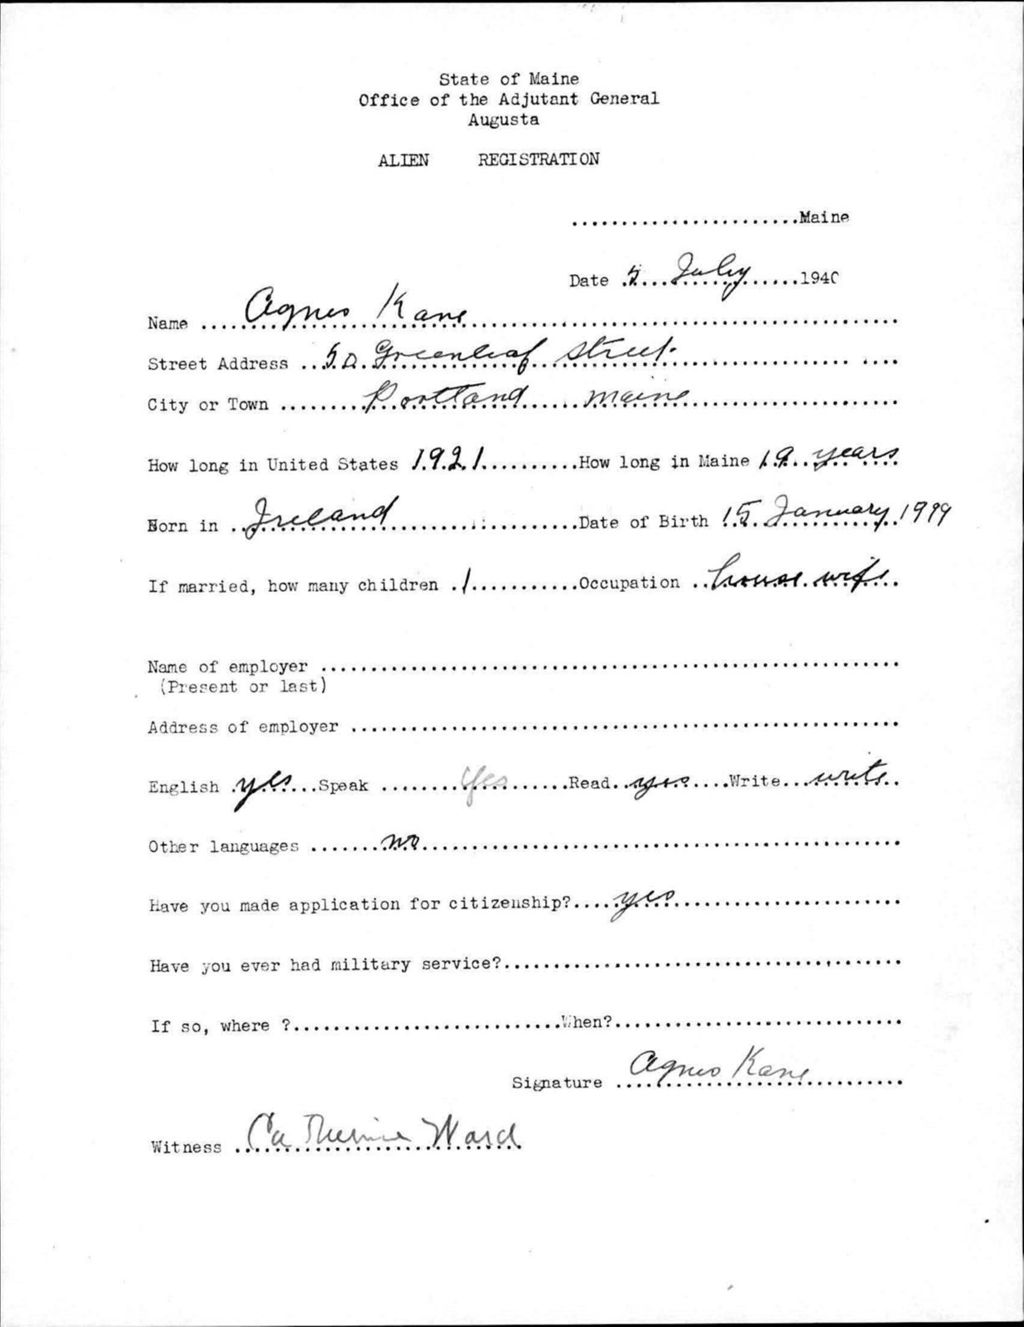 State of Maine
Office of the Adjutant General
Augusta
ALIEN REGISTRATION
.......................Maine
Date .5....July......1940
Name ....Agnes Kane..........................................
Street Address ..50.Greenleaf Street......................... ....
City or Town ........Portland......maine.....................
How long in United States 1921..........How long in Maine 19..years
Born in ..Ireland...................Date of Birth 15 January 1999
If married, how many children .1...........Occupation ..house wife.
Name of employer ..........................................................
(Present or last)
Address of employer .......................................................
English .yes...Speak ........Yes......Read..yes....Write...write..
Other languages .......no................................................
Have you made application for citizenship?....yes.......................
Have you ever had military service?........................................
If so, where ?...........................When?.............................
Signature ....Agnes Kane..........
Witness ..Catherine Ward